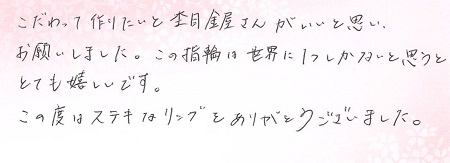 こだわって作りたいと杢目金屋さんがいいと思い、
お願いしました。この指輪は世界に1つしかないと思うと
とても嬉しいです。
この度はステキなリングをありがとうございました。